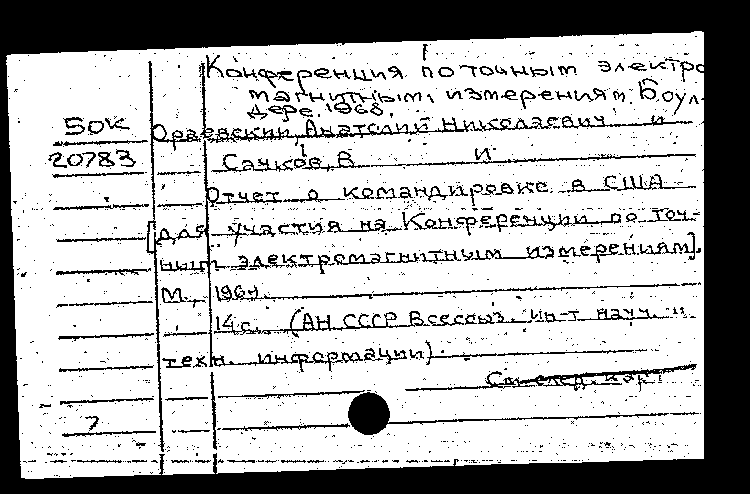 Конференция по точным электро
магнитным измерениям. Боул-
дере. 1968.
50К Ораевский, Анатолий Николаевич и
20783 Сачков, В И
Отчет о командировке в США
[для участия на Конференции по точ-
ным электромагнитным измерениям].
М., 1969.
14с. (АН СССР Всесоюз. ин-т науч. и
техн. информации).
См. след. карт
7